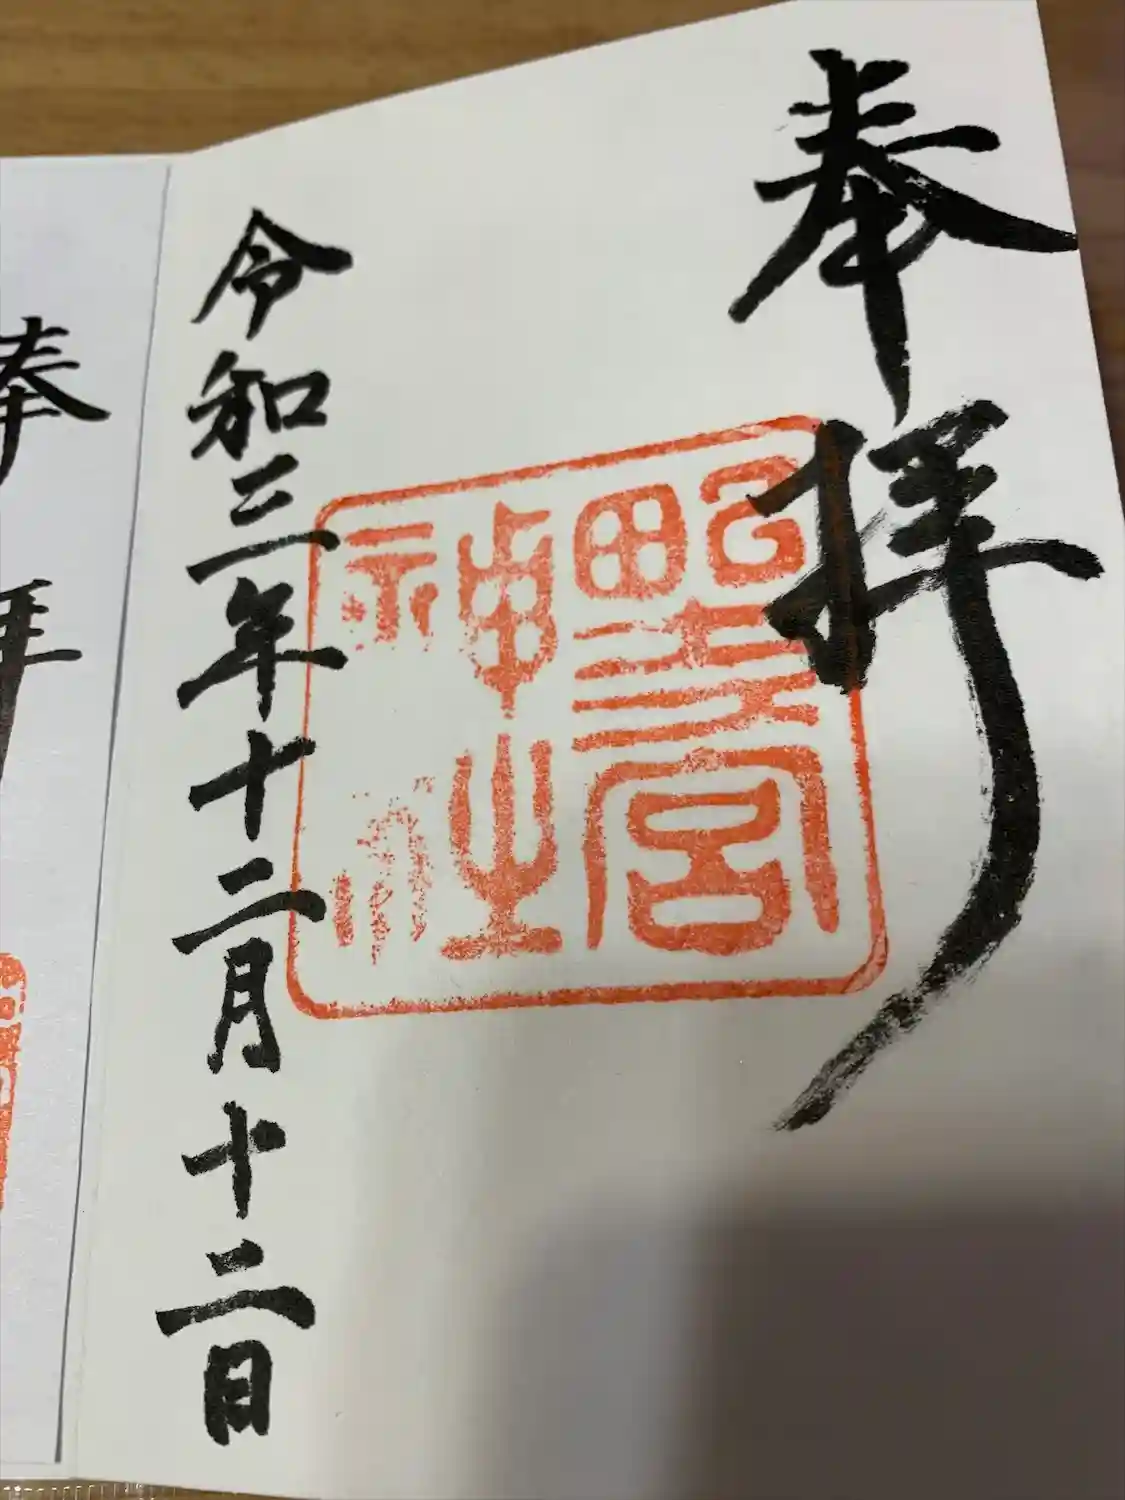 奉拝
宮
神社
令和三年十二月十二日
奉